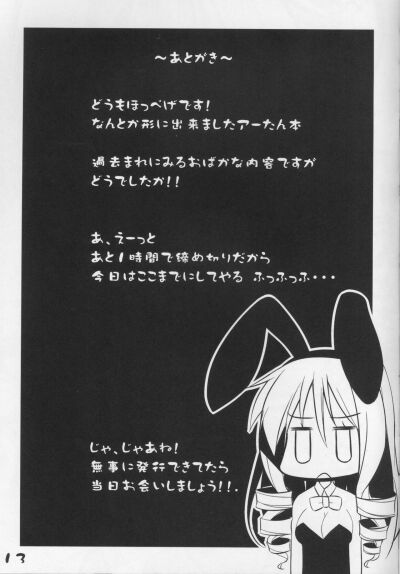 ～あとがき～
どうもほっぺげです!
なんとか形に出来ましたアーたん本
過去まれにみるおばかな内容ですが
どうでしたか!!
あ、えーっと
あと1時間で締め切りだから
今日はここまでにしてやる ふっふっふ・・・
じゃ、じゃあね!
無事に発行できてたら
当日お会いしましょう!!.
13